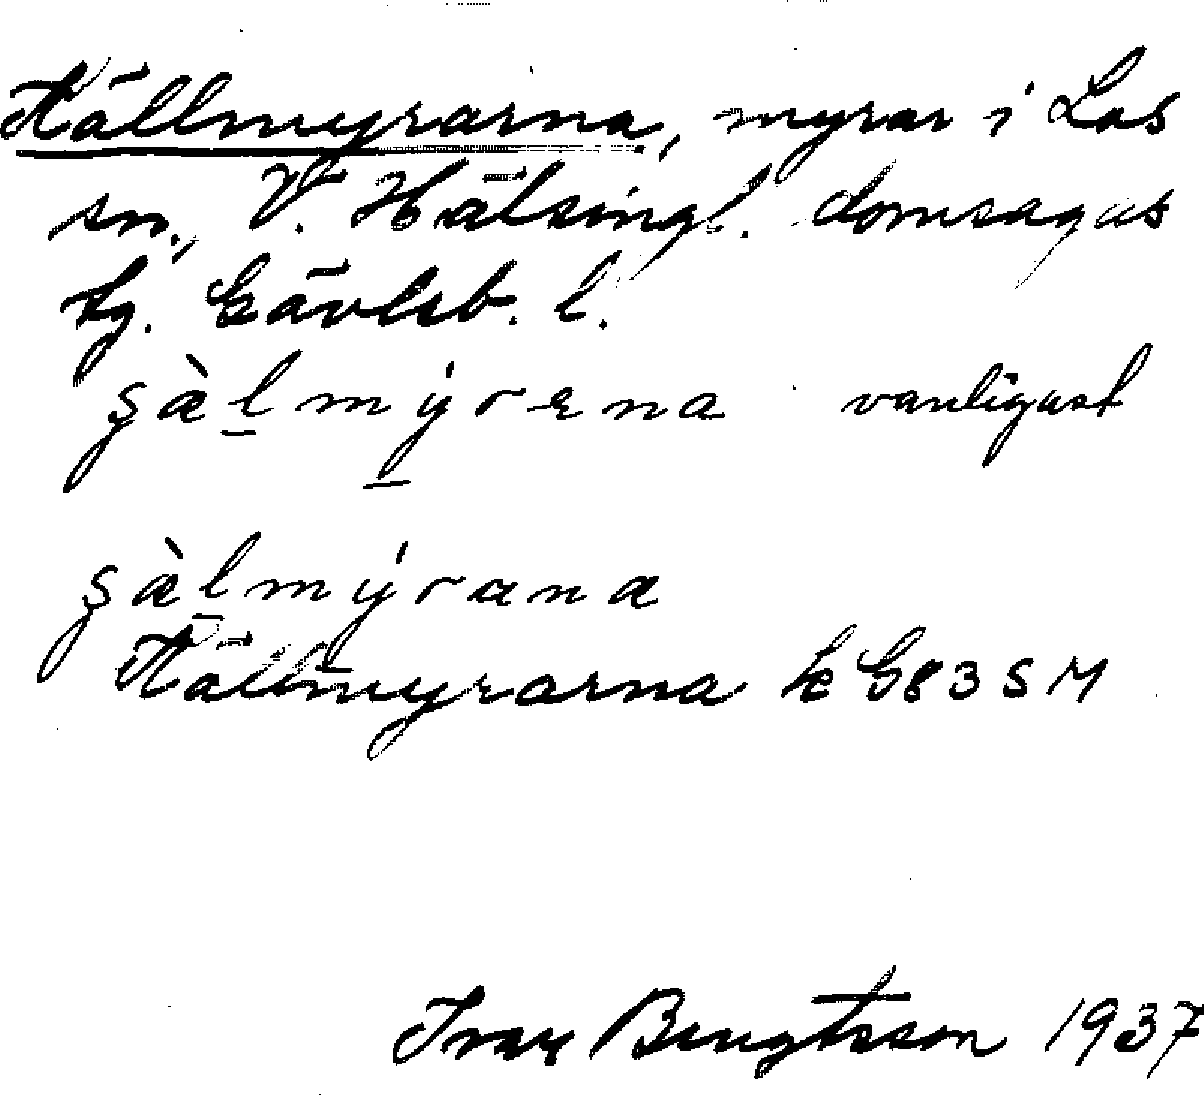 Källmyrarna, myrar i Los
sn., V. Hälsingl. domsagas
tg. Gävleb. l.
şæ̀l̠mý̠rena vanligast
şæ̀l̠mýrana
Källmyrarna LeG83SM
Ivar Bengtsson 1937